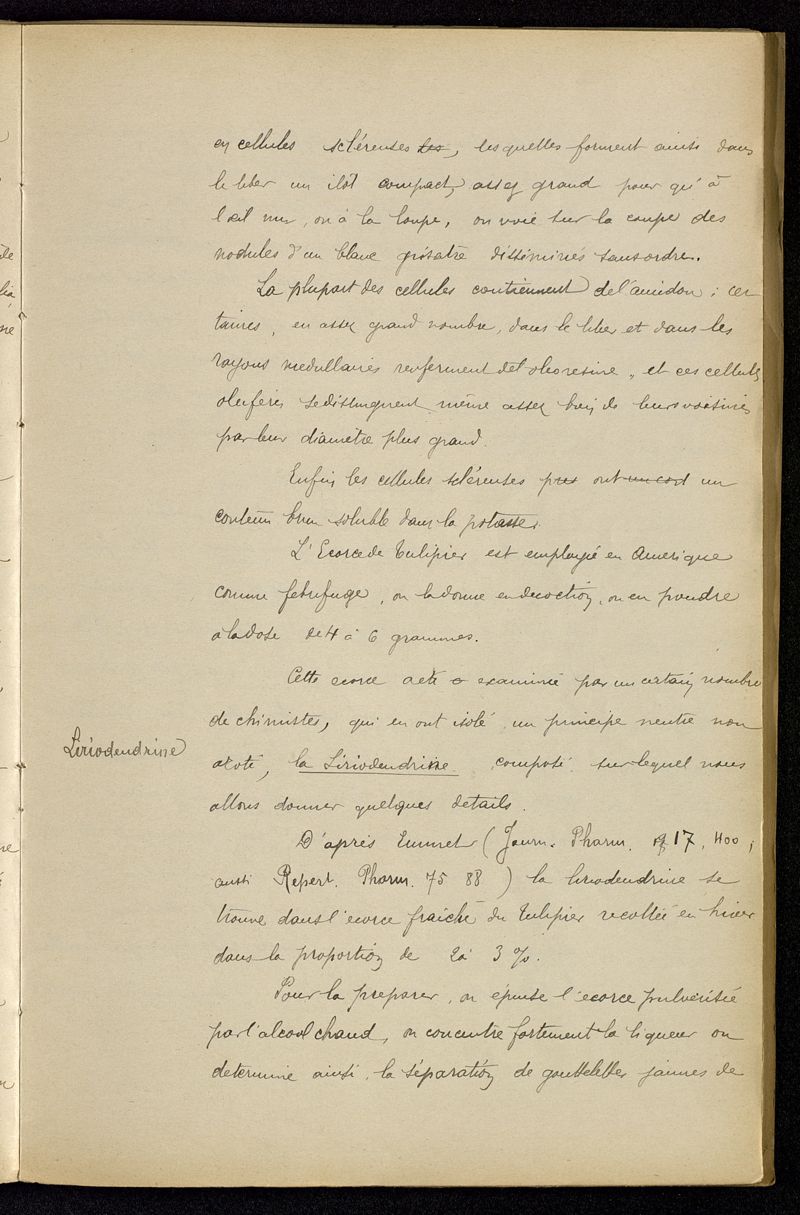 en cellules scléreuses les, lesquelles forment ainsi dans
le liber un ilôt compact, assez grand pour qu'à
l'œil nu, ou à la loupe, on voie sur la coupe des
nodules d'un blanc grisatre disséminés sans ordre.
La plupart des cellules contiennent de l'amidon ; cer
taines, en assez grand nombre, dans le liber et dans les
rayons medullaires renferment de l'oleoresine, et ces cellules
oleiferes se distinguent même assez bien de leurs voisines
par leur diametre plus grand.
Enfin les cellules scléreuses ont un
contenu brun soluble dans la potasse.
L'Ecorce de Tulipier est employée en Amerique
comme febrifuge, on la donne en decoction, ou en poudre
a la dose de 4 à 6 grammes.
Cette ecorce a été examinée par un certain nombre
de chimistes, qui en ont isolé un principe neutre non
azoté, la Liriodendrine composé sur lequel nous
allons donner quelques details.
Liriodendrine
D'après Emmet (Journ. Pharm. 17, 400 ;
aussi Repert. Pharm. 75 88) la liriodendrine se
trouve dans l'ecorce fraiche du Tulipier recoltée en hiver
dans la proportion de 2 à 3 %.
Pour la preparer, on épuise l'ecorce pulvérisée
par l'alcool chaud, on concentre fortement la liqueur on
determine ainsi la séparation de gouttelettes jaunes de